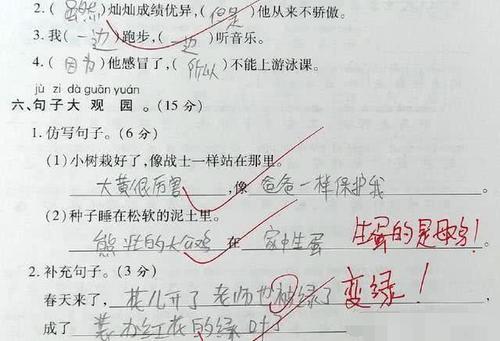 2.(虽然)灿灿成绩优异,(但是)他从来不骄傲。
3.我(一边)跑步,(一边)听音乐。
4.(因为)他感冒了,(所以)不能上游泳课。
jù zi dà guān yuán
六、句子大观园。(15分)
1.仿写句子。(6分)
(1)小树栽好了,像战士一样站在那里。
大黄很厉害,像爸爸一样保护我
(2)种子睡在松软的泥土里。
熊壮的大公鸡在家中生蛋 生蛋的是母鸡!
2.补充句子。(3分)
春天来了,花儿开了老师也被绿了 变绿!
成了装办红花的绿叶了